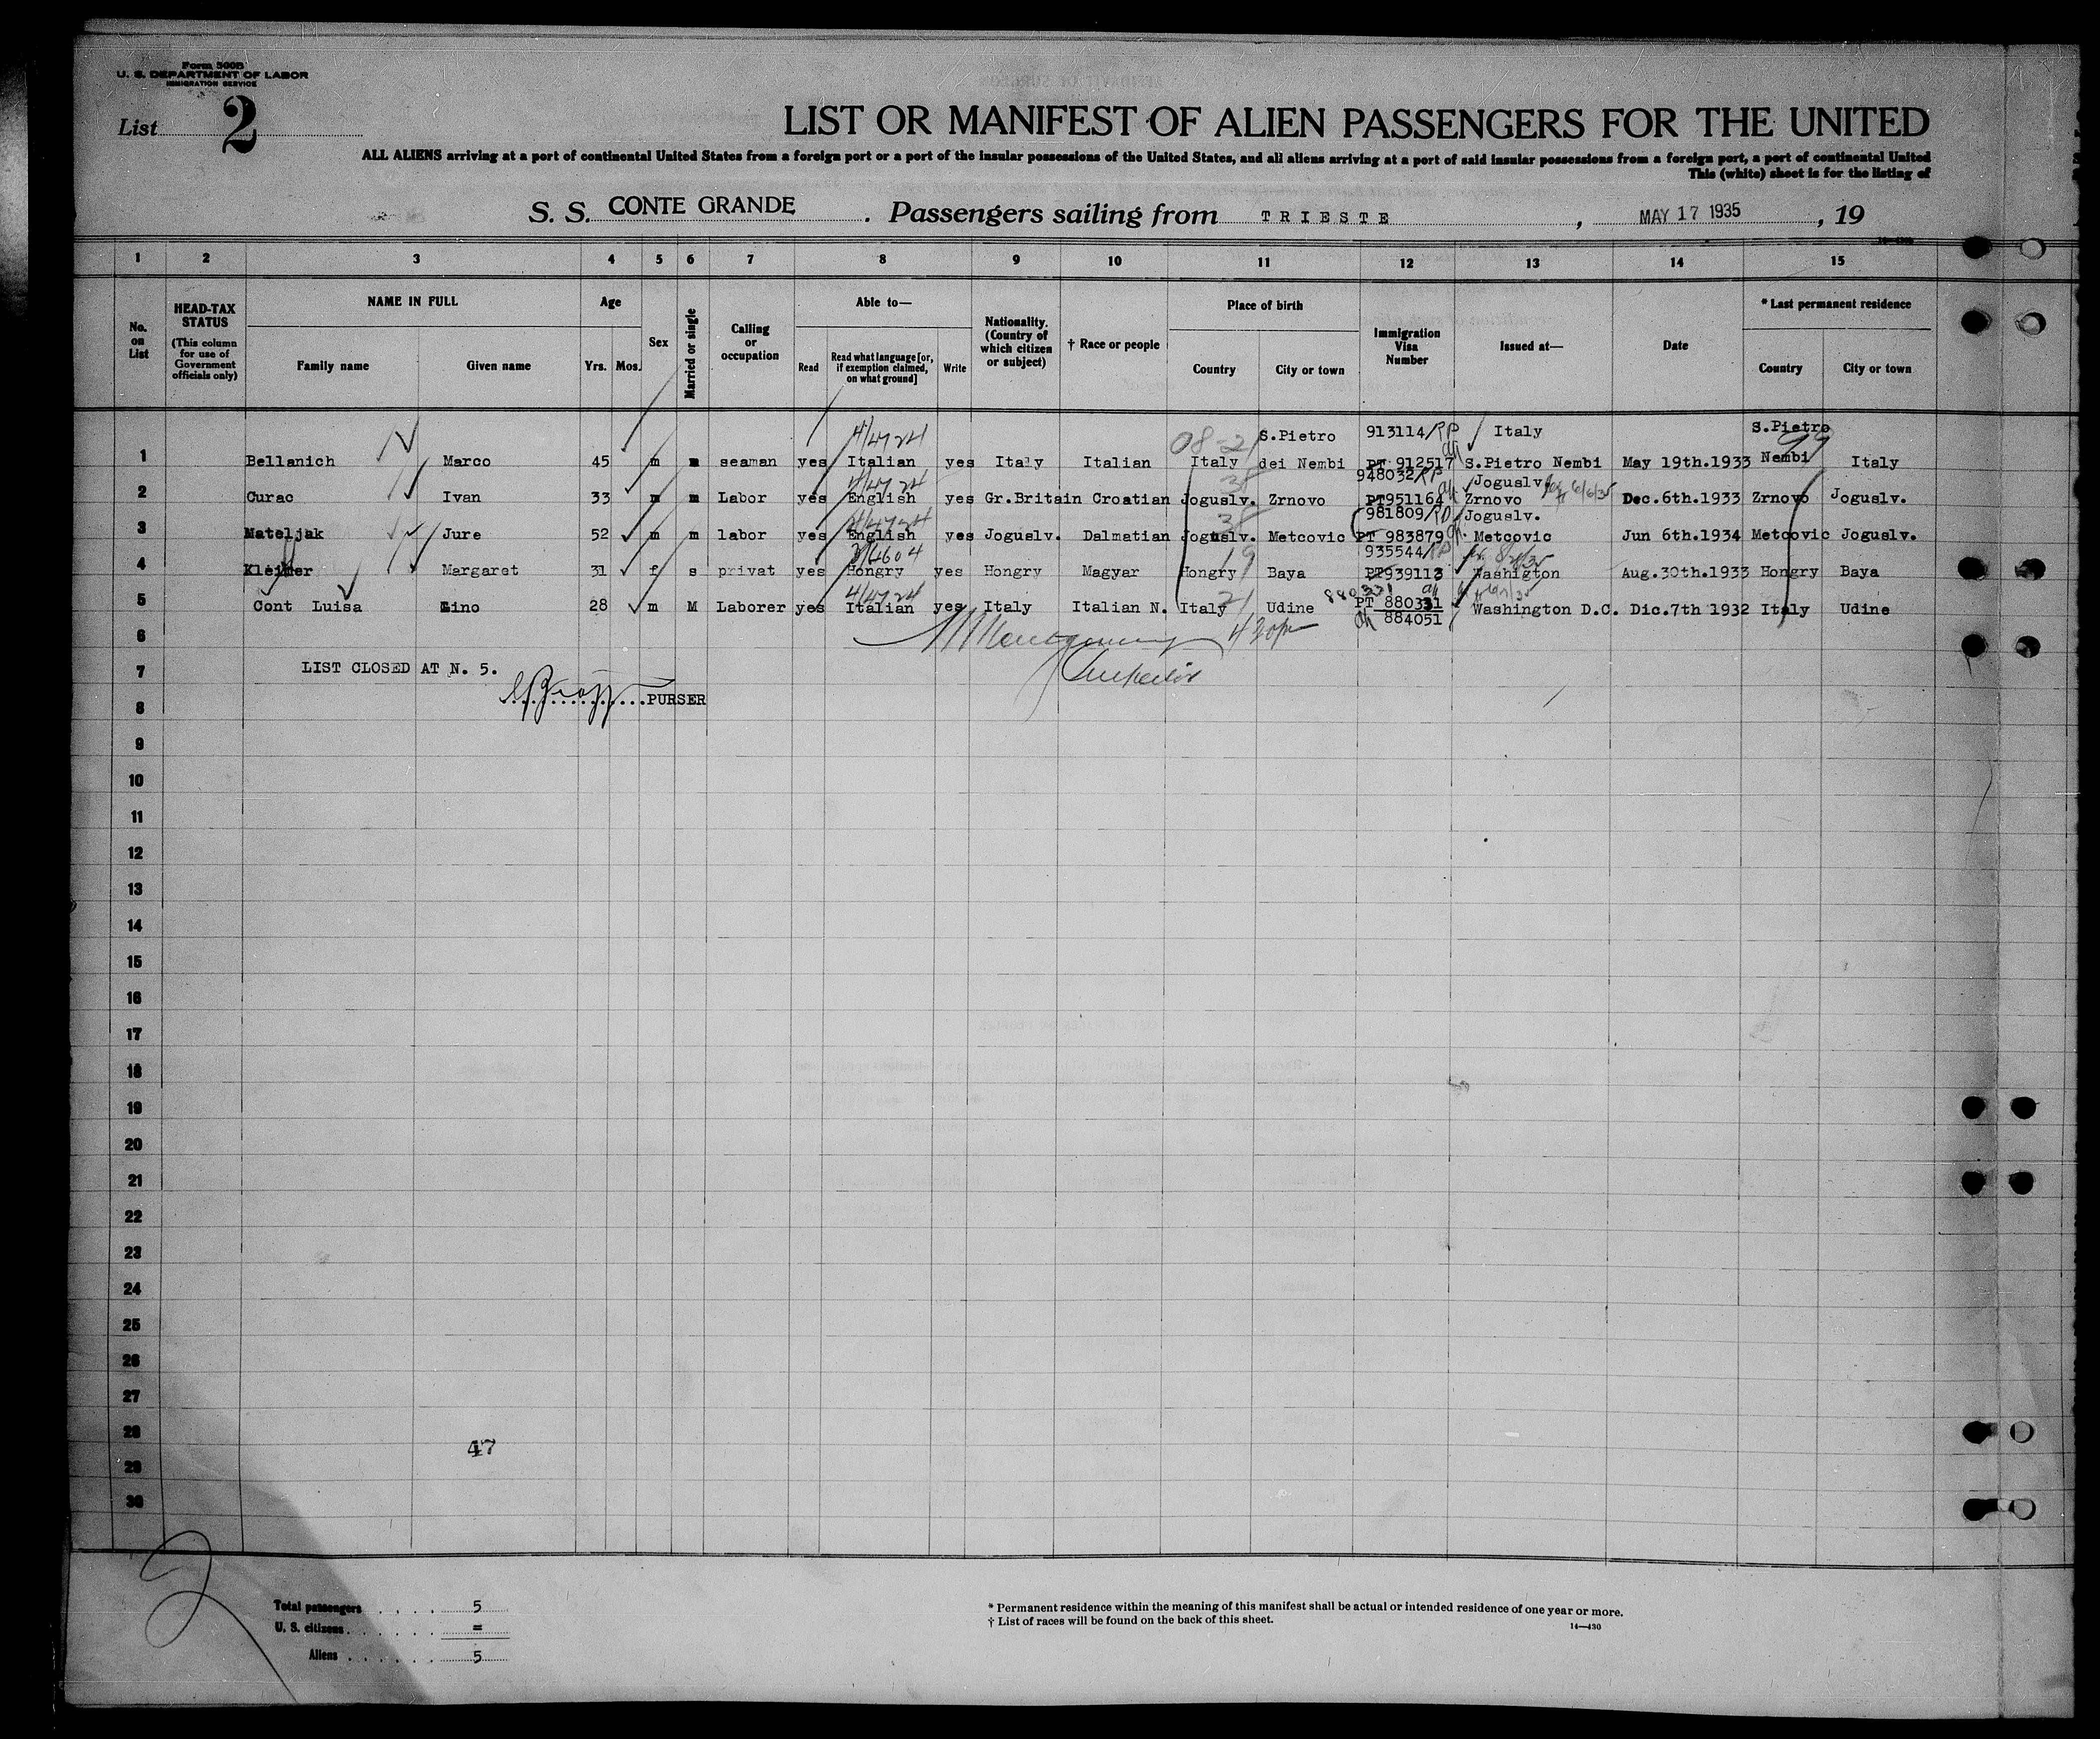 Form 500B
U. S. DEPARTMENT OF LABOR
IMMIGRATION SERVICE
List 2
LIST OR MANIFEST OF ALIEN PASSENGERS FOR THE UNITED
ALL ALIENS arriving at a port of continental United States from a foreign port or a port of the insular possessions of the United States, and all aliens arriving at a port of said insular possessions from a foreign port, a port of continental United
This (white) sheet is for the listing of
S. S. CONTE GRANDE . Passengers sailing from TRIESTE , MAY 17 1935 , 19
1 2 3 4 5 6 7 8 9 10 11 12 13 14 15
No. on List
HEAD-TAX STATUS (This column for use of Government officials only)
NAME IN FULL Family name Given name
Age Yrs. Mos.
Sex
Married or single
Calling or occupation
Able to— Read Read what language [or, if exemption claimed, on what ground] Write
Nationality. (Country of which citizen or subject)
† Race or people
Place of birth Country City or town
Immigration Visa Number
Issued at—
Date
* Last permanent residence Country City or town
4/4724
08-21 S.Pietro 913114/RP Italy S.Pietro 99
1 Bellanich Marco 45 m m seaman yes Italian yes Italy Italian Italy dei Nembi PT 912517 S.Pietro Nembi May 19th.1933 Nembi Italy
4/4724 38 948032/RP Joguslv.
2 Curac Ivan 33 m m Labor yes English yes Gr.Britain Croatian Joguslv. Zrnovo PT951164 Zrnovo 6/6/35 Dec.6th.1933 Zrnovo Joguslv.
4/4724 38 981809/RP Joguslv.
3 Mateljak Jure 52 m m labor yes English yes Joguslv. Dalmatian Joguslv. Metcovic PT 983879 Metcovic Jun 6th.1934 Metcovic Joguslv.
3/4604 19 935544/RP
4 Kleiner Margaret 31 f s privat yes Hongry yes Hongry Magyar Hongry Baya PT939113 Washigton Aug.30th.1933 Hongry Baya
4/4724 21 880331
5 Cont Luisa Lino 28 m M Laborer yes Italian yes Italy Italian N. Italy Udine PT 880331 Washington D.C. Dic.7th 1932 Italy Udine
884051
6 Montgomery 420pm
Inspector
7 LIST CLOSED AT N. 5.
8 PURSER
9
10
11
12
13
14
15
16
17
18
19
20
21
22
23
24
25
26
27
28
47
29
30
2
Total passengers . . . . 5
U. S. citizens . . . . . =
Aliens . . . . . 5
* Permanent residence within the meaning of this manifest shall be actual or intended residence of one year or more.
† List of races will be found on the back of this sheet.
14—430